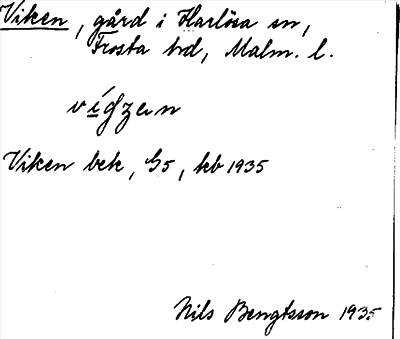 Viken, gård i Harlösa sn,
Frosta hd, Malm. l.
vígzen
Viken bek, G5, kb 1935
Nils Bengtsson 1935